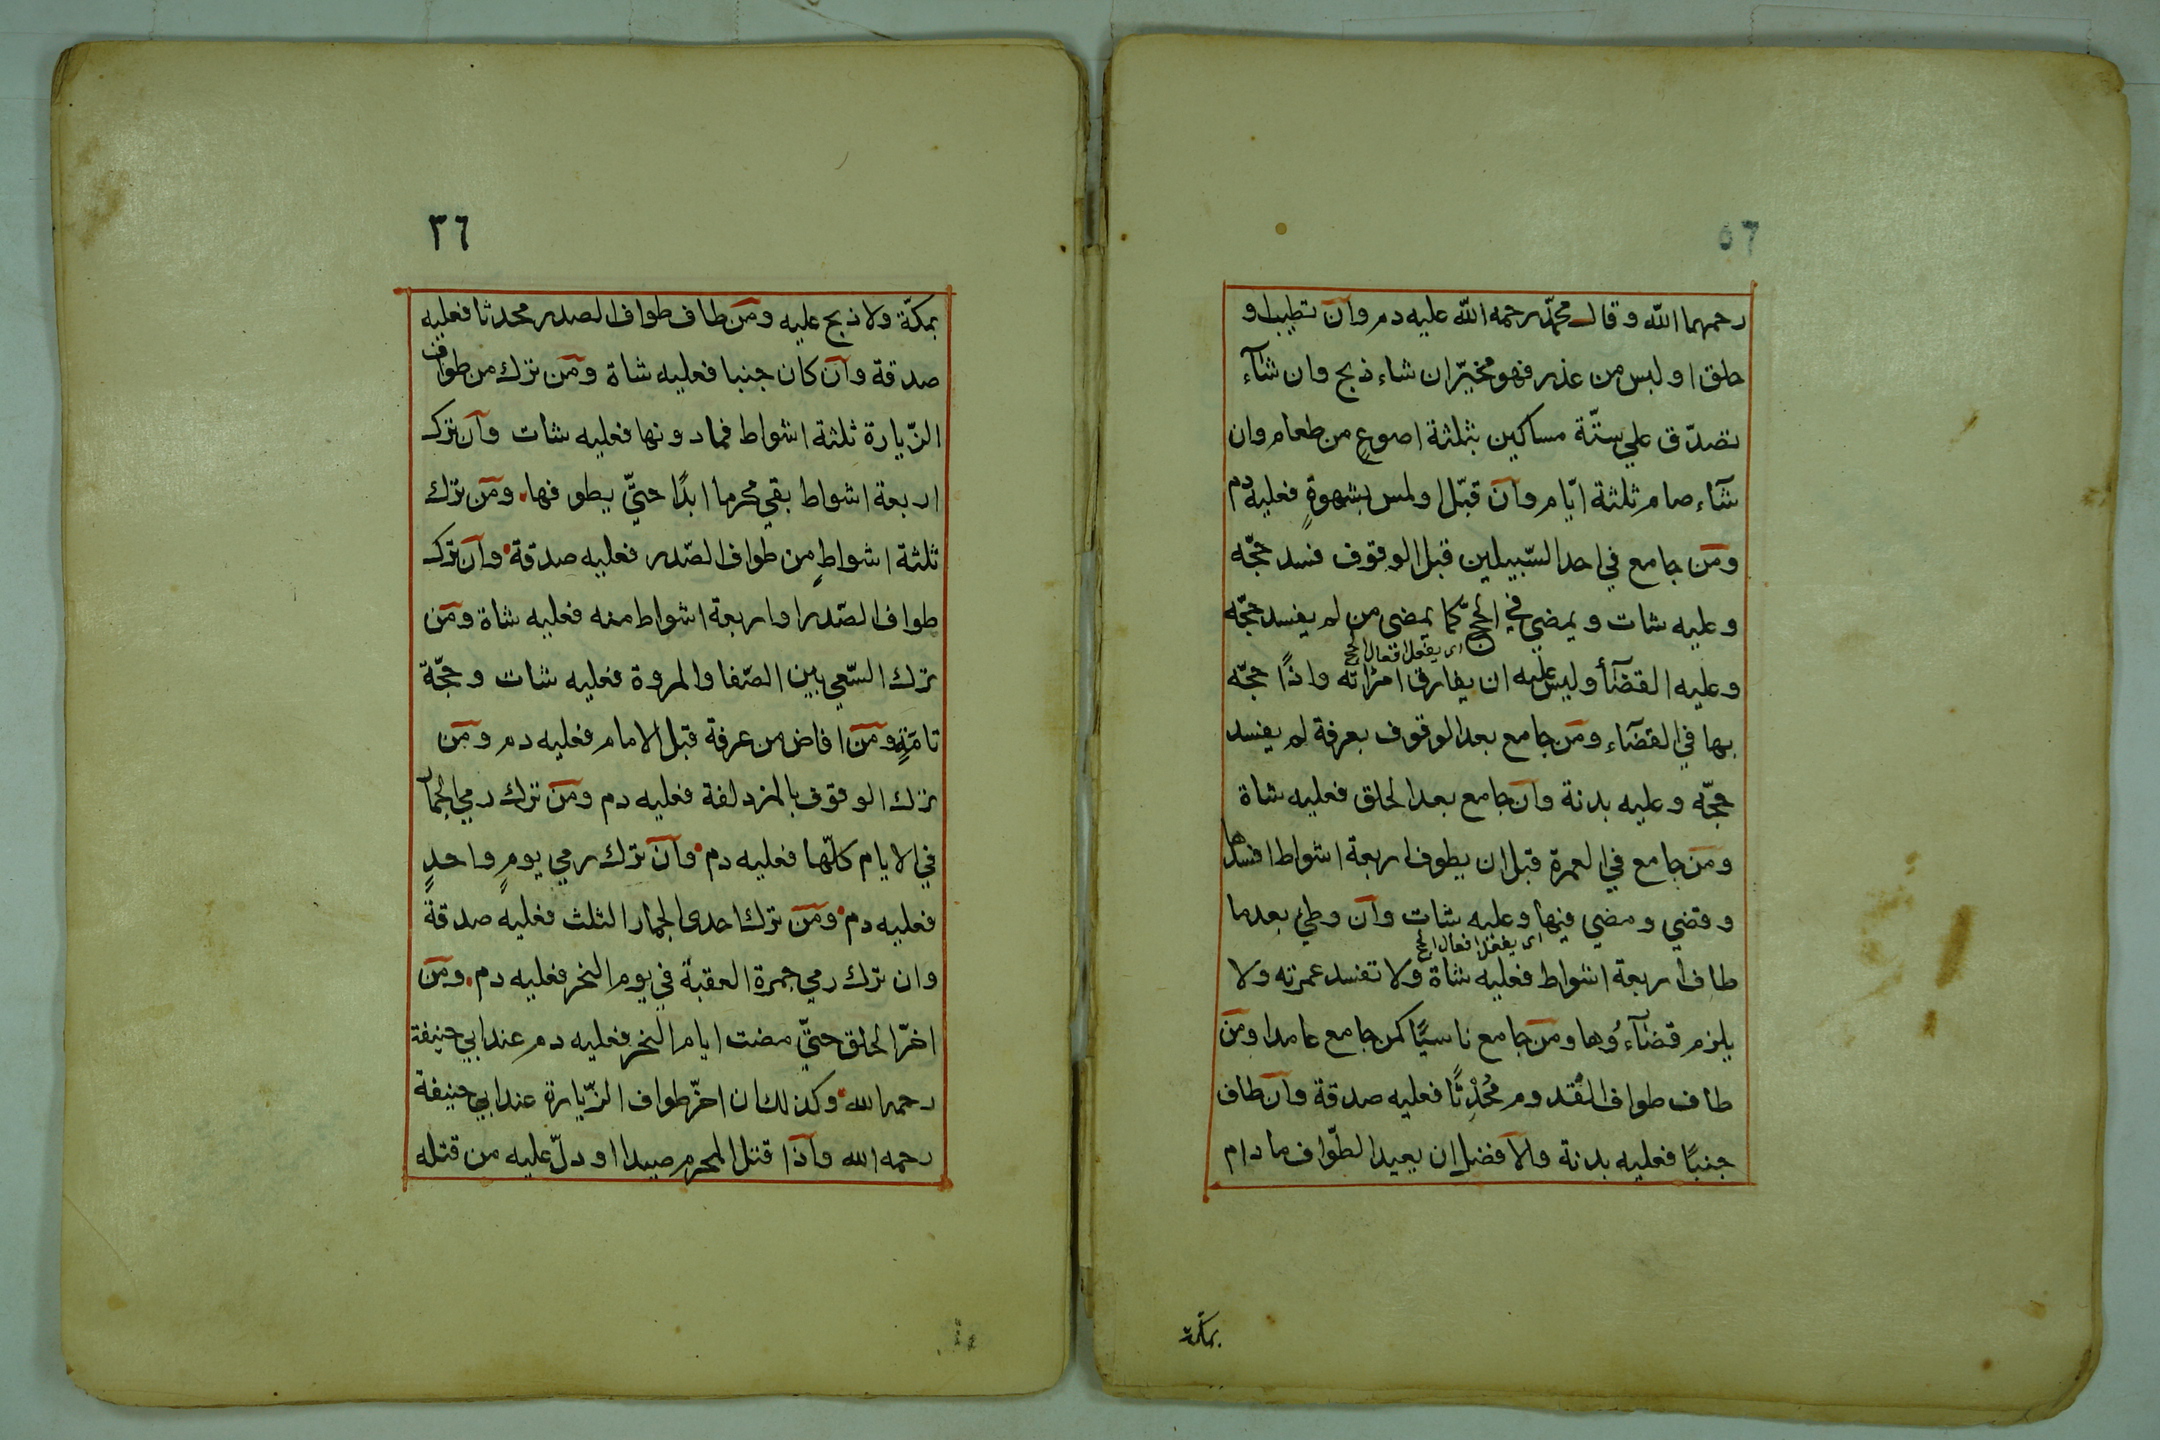 رحمهما الله وقال محمّد رحمه الله عليه دم وان تطيب او
حلق او لبس من عذر فهو مخيّر ان شاء ذبح وان شآء
تصدّق علي ستّة مساكين بثلثة اصوعٍ من طعام وان
شآء صام ثلثة ايّام وان قبّل او لمس بشهوةٍ فعليه دم
ومن جامع في احد السّبيلين قبل الوقوف فسد حجّه
وعليه شات ويمضي في الحجّ كما يمضى من لم يفسد حجّه
اى يفعل افعال الحج
وعليه القضآأ وليس عليه ان يفارق امرأته واذا حجّه
بها في القضآء ومن جامع بعد الوقوف بعرفة لم يفسد
حجّه وعليه بدنة وان جامع بعد الحلق فعليه شاة
ومن جامع في العمرة قبل ان يطوف اربعة اشواط افسدها
وقضي ومضي فيها وعليه شات وان وطئ بعدما
اى يفعل افعال الحج
طاف اربعة اشواط فعليه شاة ولا تفسد عمرته ولا
يلزم قضآءُوها ومن جامع ناسيًا كمن جامع عامدا ومن
طاف طواف القدوم مُحْدِثًا فعليه صدقة وان طاف
جنبًا فعليه بدنة والافضل ان يعيد الطّواف مادام
بمكّة
٣٦
بمكّة ولا ذبح عليه ومن طاف طواف الصدر محدثا فعليه
صدقة وان كان جنبا فعليه شاة ومن ترك من طواف
الزّيارة ثلثة اشواط فما دونها فعليه شات وان ترك
اربعة اشواط بقي محرما ابدًا حتيّ يطوفها ومن ترك
ثلثة اشواطٍ من طواف الصّدر فعليه صدقة وان ترك
طواف الصّدر او اربعة اشواط منه فعليه شاة ومن
ترك السّعي بين الصّفا والمروة فعليه شات وحجّة
تامّةٍ ومن افاض من عرفة قبل الامام فعليه دم ومن
ترك الوقوف بالمزدلفة فعليه دم ومن ترك رمي الجمار
في الايام كلّها فعليه دم وان ترك رمي يومٍ واحدٍ
فعليه دم ومن ترك احدى الجمار الثلث فعليه صدقةً
وان ترك رمي جمرة العقبة في يوم النحر فعليه دم ومن
اخّر الحلق حتيّ مضت ايام النحر فعليه دم عند ابي حنيفة
رحمه الله وكذلك ان اخّر طواف الزّيارة عند ابي حنيفة
رحمه الله واذا قتل المحرم صيدا او دلّ عليه من قتله